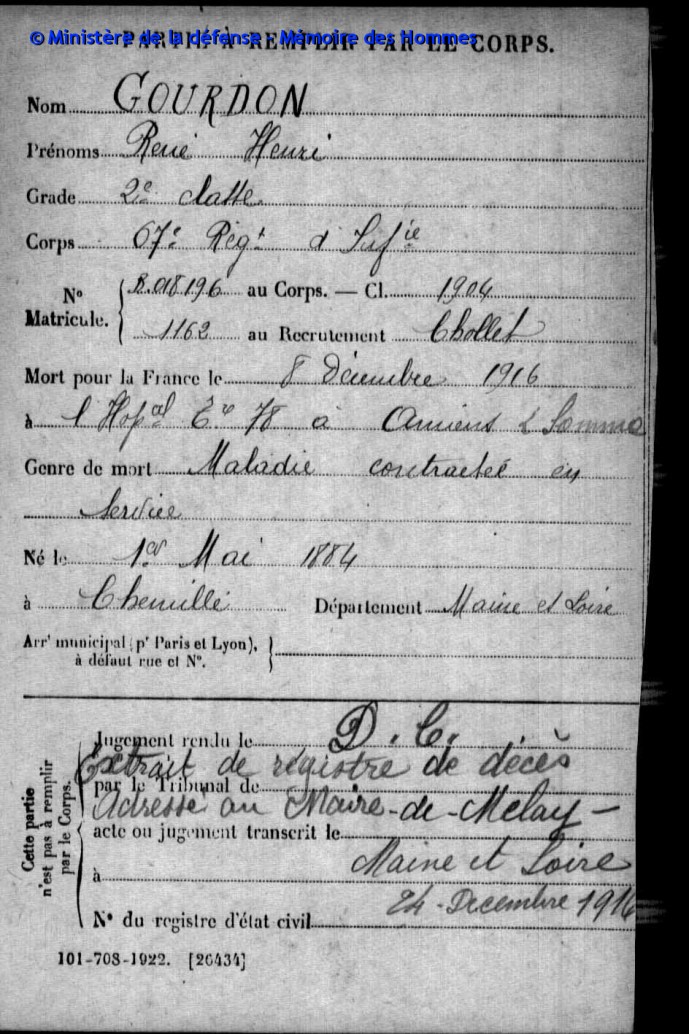 © Ministère de la défense - Mémoire des Hommes
PARTIE À REMPLIR PAR LE CORPS.
Nom GOURDON
Prénoms René Henri
Grade 2e classe
Corps 67e Régt d'Infie
No Matricule. { R.018196 au Corps. — Cl. 1904
1162 au Recrutement Chollet
Mort pour la France le 8 Décembre 1916
à l'Hopal Ere 78 à Amiens Somme
Genre de mort Maladie contractée en
Service
Né le 1er Mai 1884
à Chemillé Département Maine et Loire
Arrt municipal (pr Paris et Lyon), }
à défaut rue et No.
Cette partie n'est pas à remplir par le Corps.
Jugement rendu le D. C.
Extrait de régistre de décès
par le Tribunal de
Adressé au Maire-de-Melay-
acte ou jugement transcrit le
Maine et Loire
à
24-Decembre 1916
No du registre d'état civil
101-708-1922. [26434]